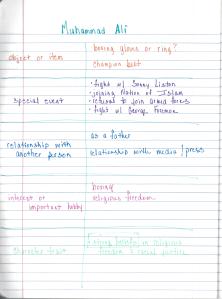 Muhammad Ali
boxing gloves or ring?
object or item
champion belt
• fight w/ Sonny Liston
• joining Nation of Islam
special event
• refused to join armed forces
• fight w/ George Foreman
relationship with
another person
as a father
relationship with media / press
interest or
important hobby
boxing
religious freedom
character trait
strong beliefs in religious
freedom & racial justice